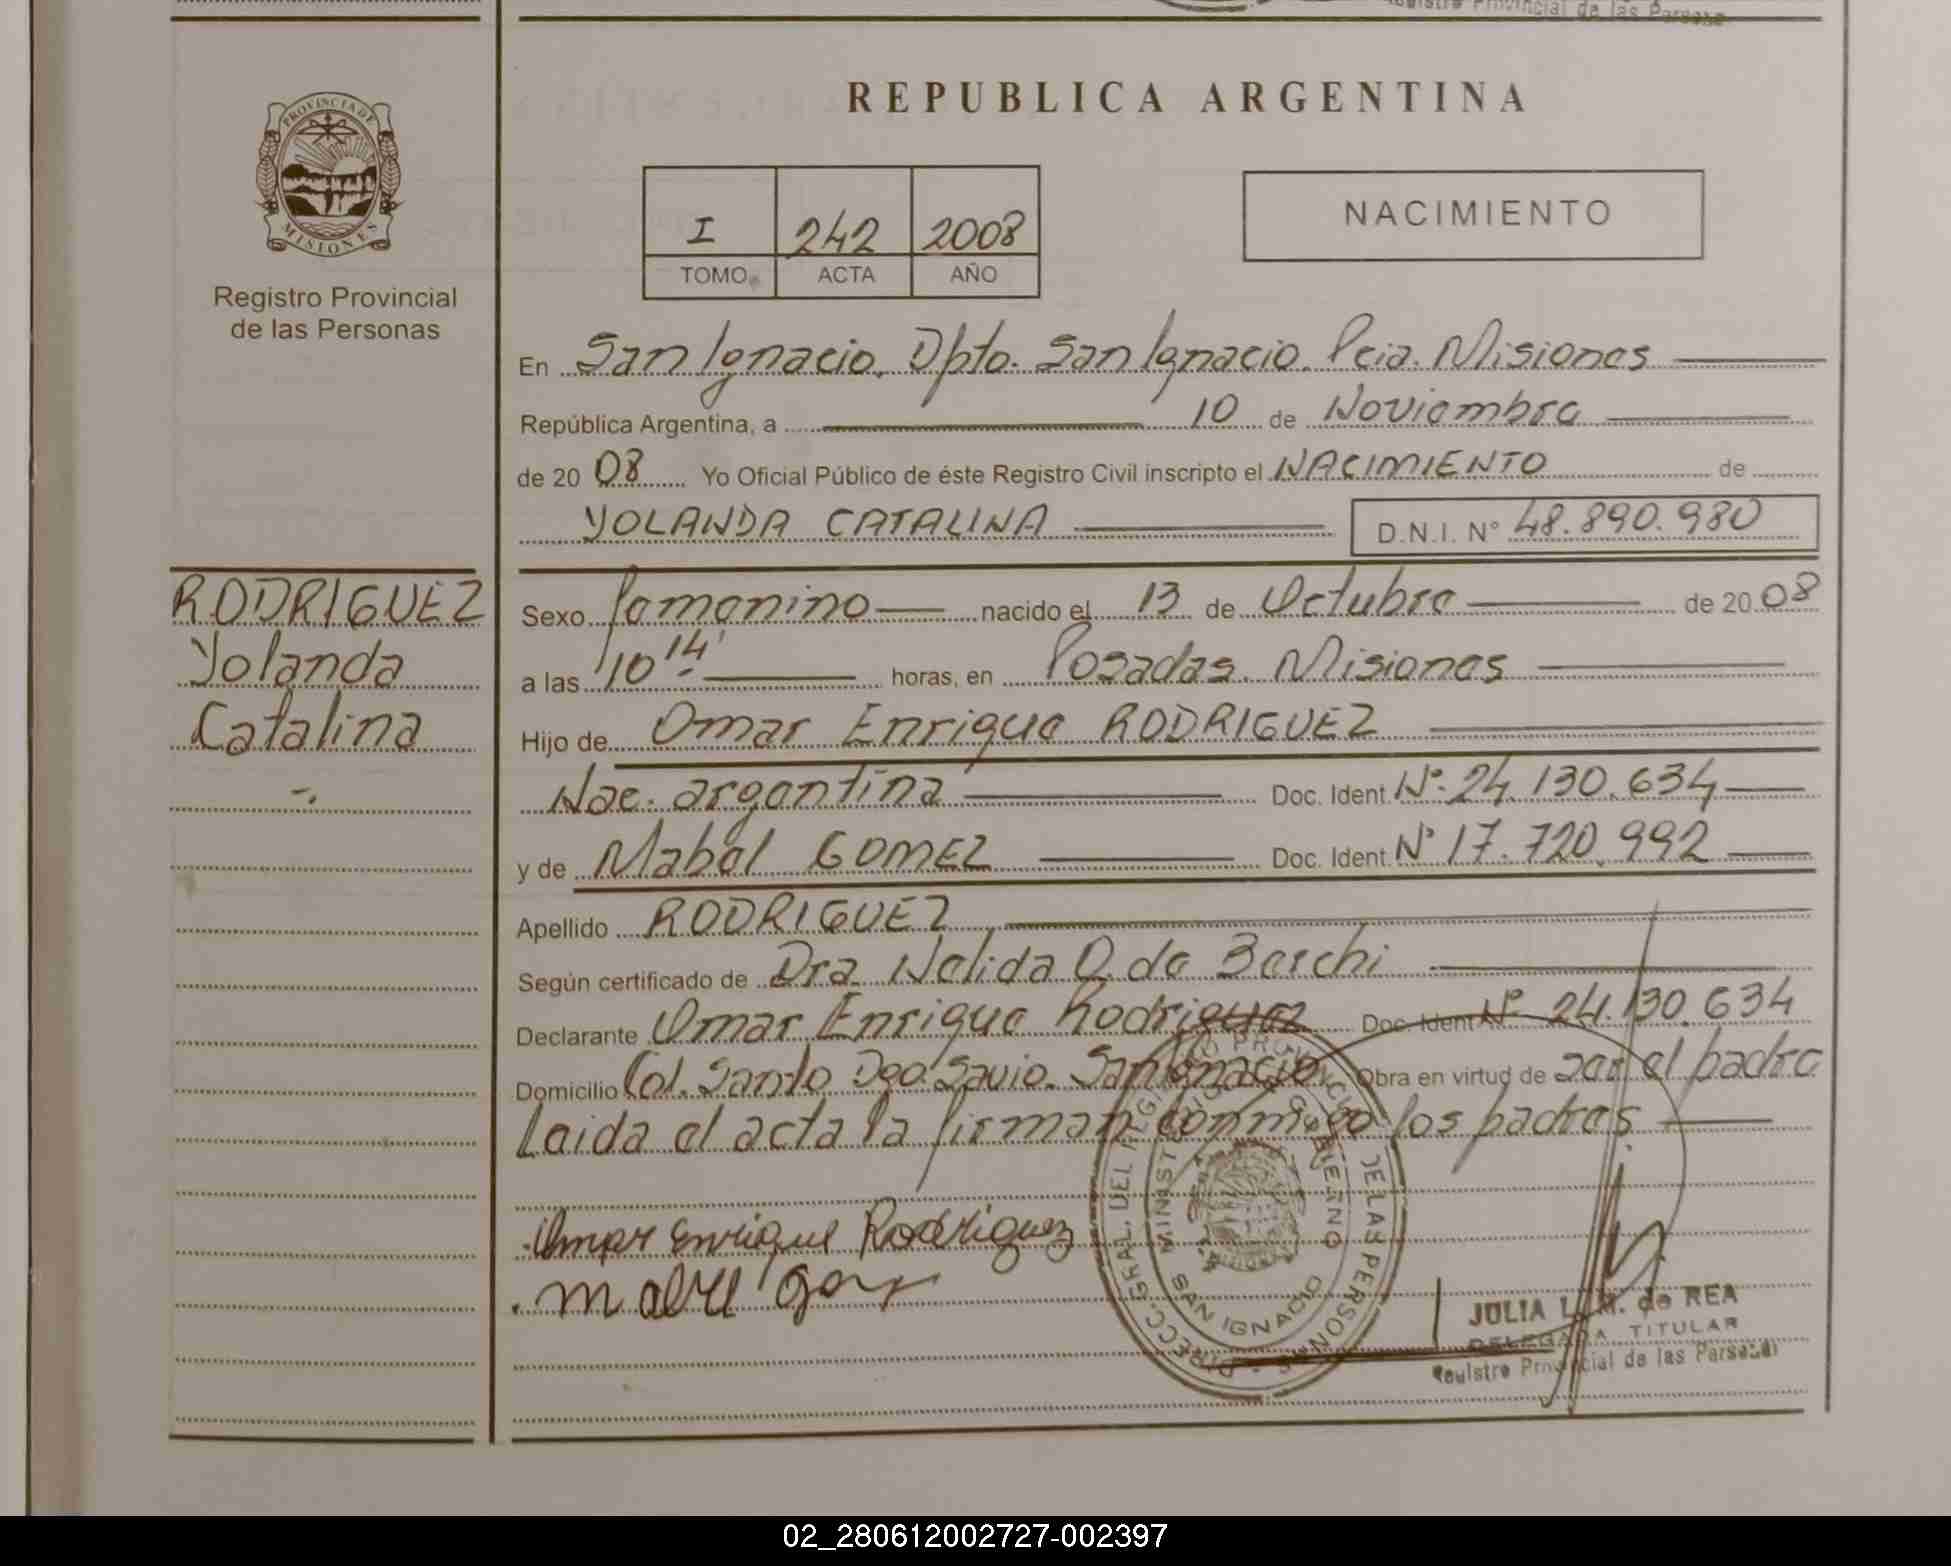 REPUBLICA ARGENTINA
PROVINCIA DE
MISIONES
Registro Provincial
de las Personas
I 242 2008
TOMO ACTA AÑO
NACIMIENTO
En San Ignacio, Dpto. San Ignacio. Pcia. Misiones
República Argentina, a 10 de Noviembre
de 20 08 Yo Oficial Público de éste Registro Civil inscripto el NACIMIENTO de
YOLANDA CATALINA D.N.I. N° 48.890.980
RODRIGUEZ
Yolanda
Catalina
Sexo femenino nacido el 13 de Octubre de 20 08
a las 10 14' horas, en Posadas. Misiones
Hijo de Omar Enrique RODRIGUEZ
Nac. argentina Doc. Ident N°. 24.130.634
y de Mabel GOMEZ Doc. Ident N° 17.720.992
Apellido RODRIGUEZ
Según certificado de Dra. Nelida Q. de Berchi
Declarante Omar Enrique Rodriguez Doc. Ident N° 24.130.634
Domicilio Col. Santo Dgo. Savio. San Ignacio Obra en virtud de ser el padre
Leida el acta la firman conmigo los padres.
Omar Enrique Rodriguez
Mabel
DIRECC. GRAL. DEL REGISTRO PROVINCIAL DE LAS PERSONAS
MINISTERIO DE GOBIERNO
SAN IGNACIO
JULIA L. M. de REA
DELEGADA TITULAR
Registro Provincial de las Personas
02_280612002727-002397